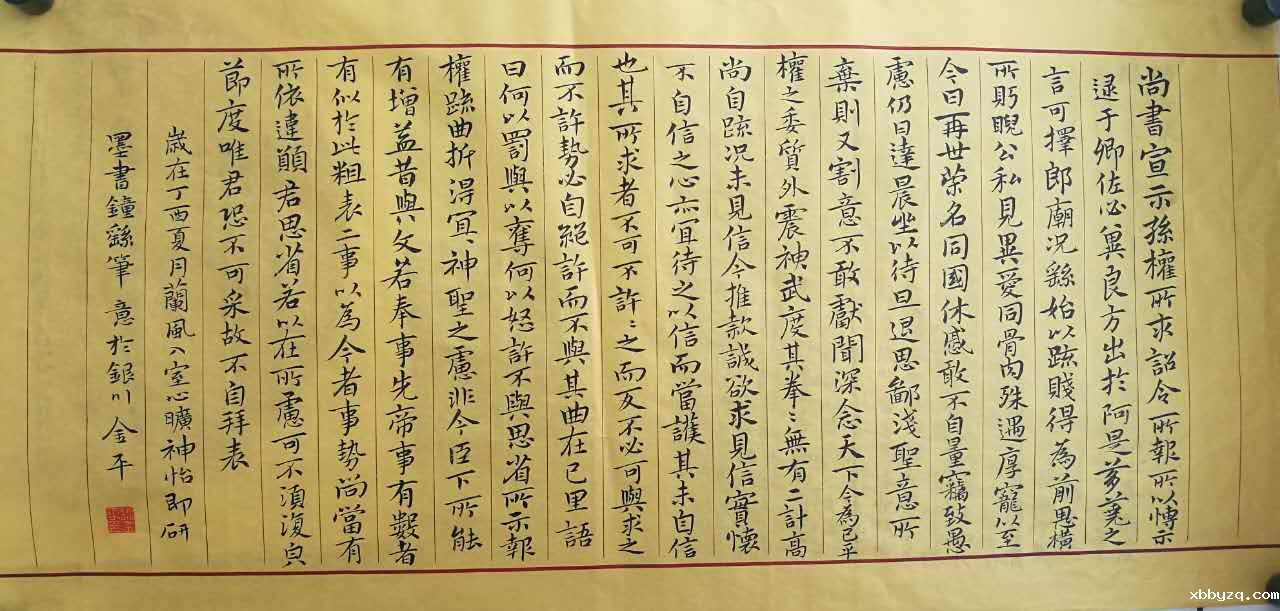 尚書宣示孫權所求詔令所報所以博示
逮于卿佐必冀良方出於阿是芻蕘之
言可擇郎廟況繇始以疏賤得為前恩橫
所眄睨公私見異愛同骨肉殊遇厚寵以至
今日再世榮名同國休慼敢不自量竊致愚
慮仍日達晨坐以待旦退思鄙淺聖意所
棄則又割意不敢獻聞深念天下今為已平
權之委質外震神武度其拳〻無有二計高
尚自疏況未見信今推款誠欲求見信實懷
不自信之心亦宜待之以信而當護其未自信
也其所求者不可不許〻之而反不必可與求之
而不許勢必自絕許而不與其曲在己里語
曰何以罰與以奪何以怒許不與思省所示報
權疏曲折得宜〻神聖之慮非今臣下所能
有增益昔與文若奉事先帝事有數者
有似於此粗表二事以為今者事勢尚當有
所依違願君思省若以在所慮可不須復皃
節度唯君恐不可采故不自拜表
歲在丁酉夏月蘭風入室心曠神怡即研
墨書鐘繇筆意於銀川 金平
xbbyzq.com